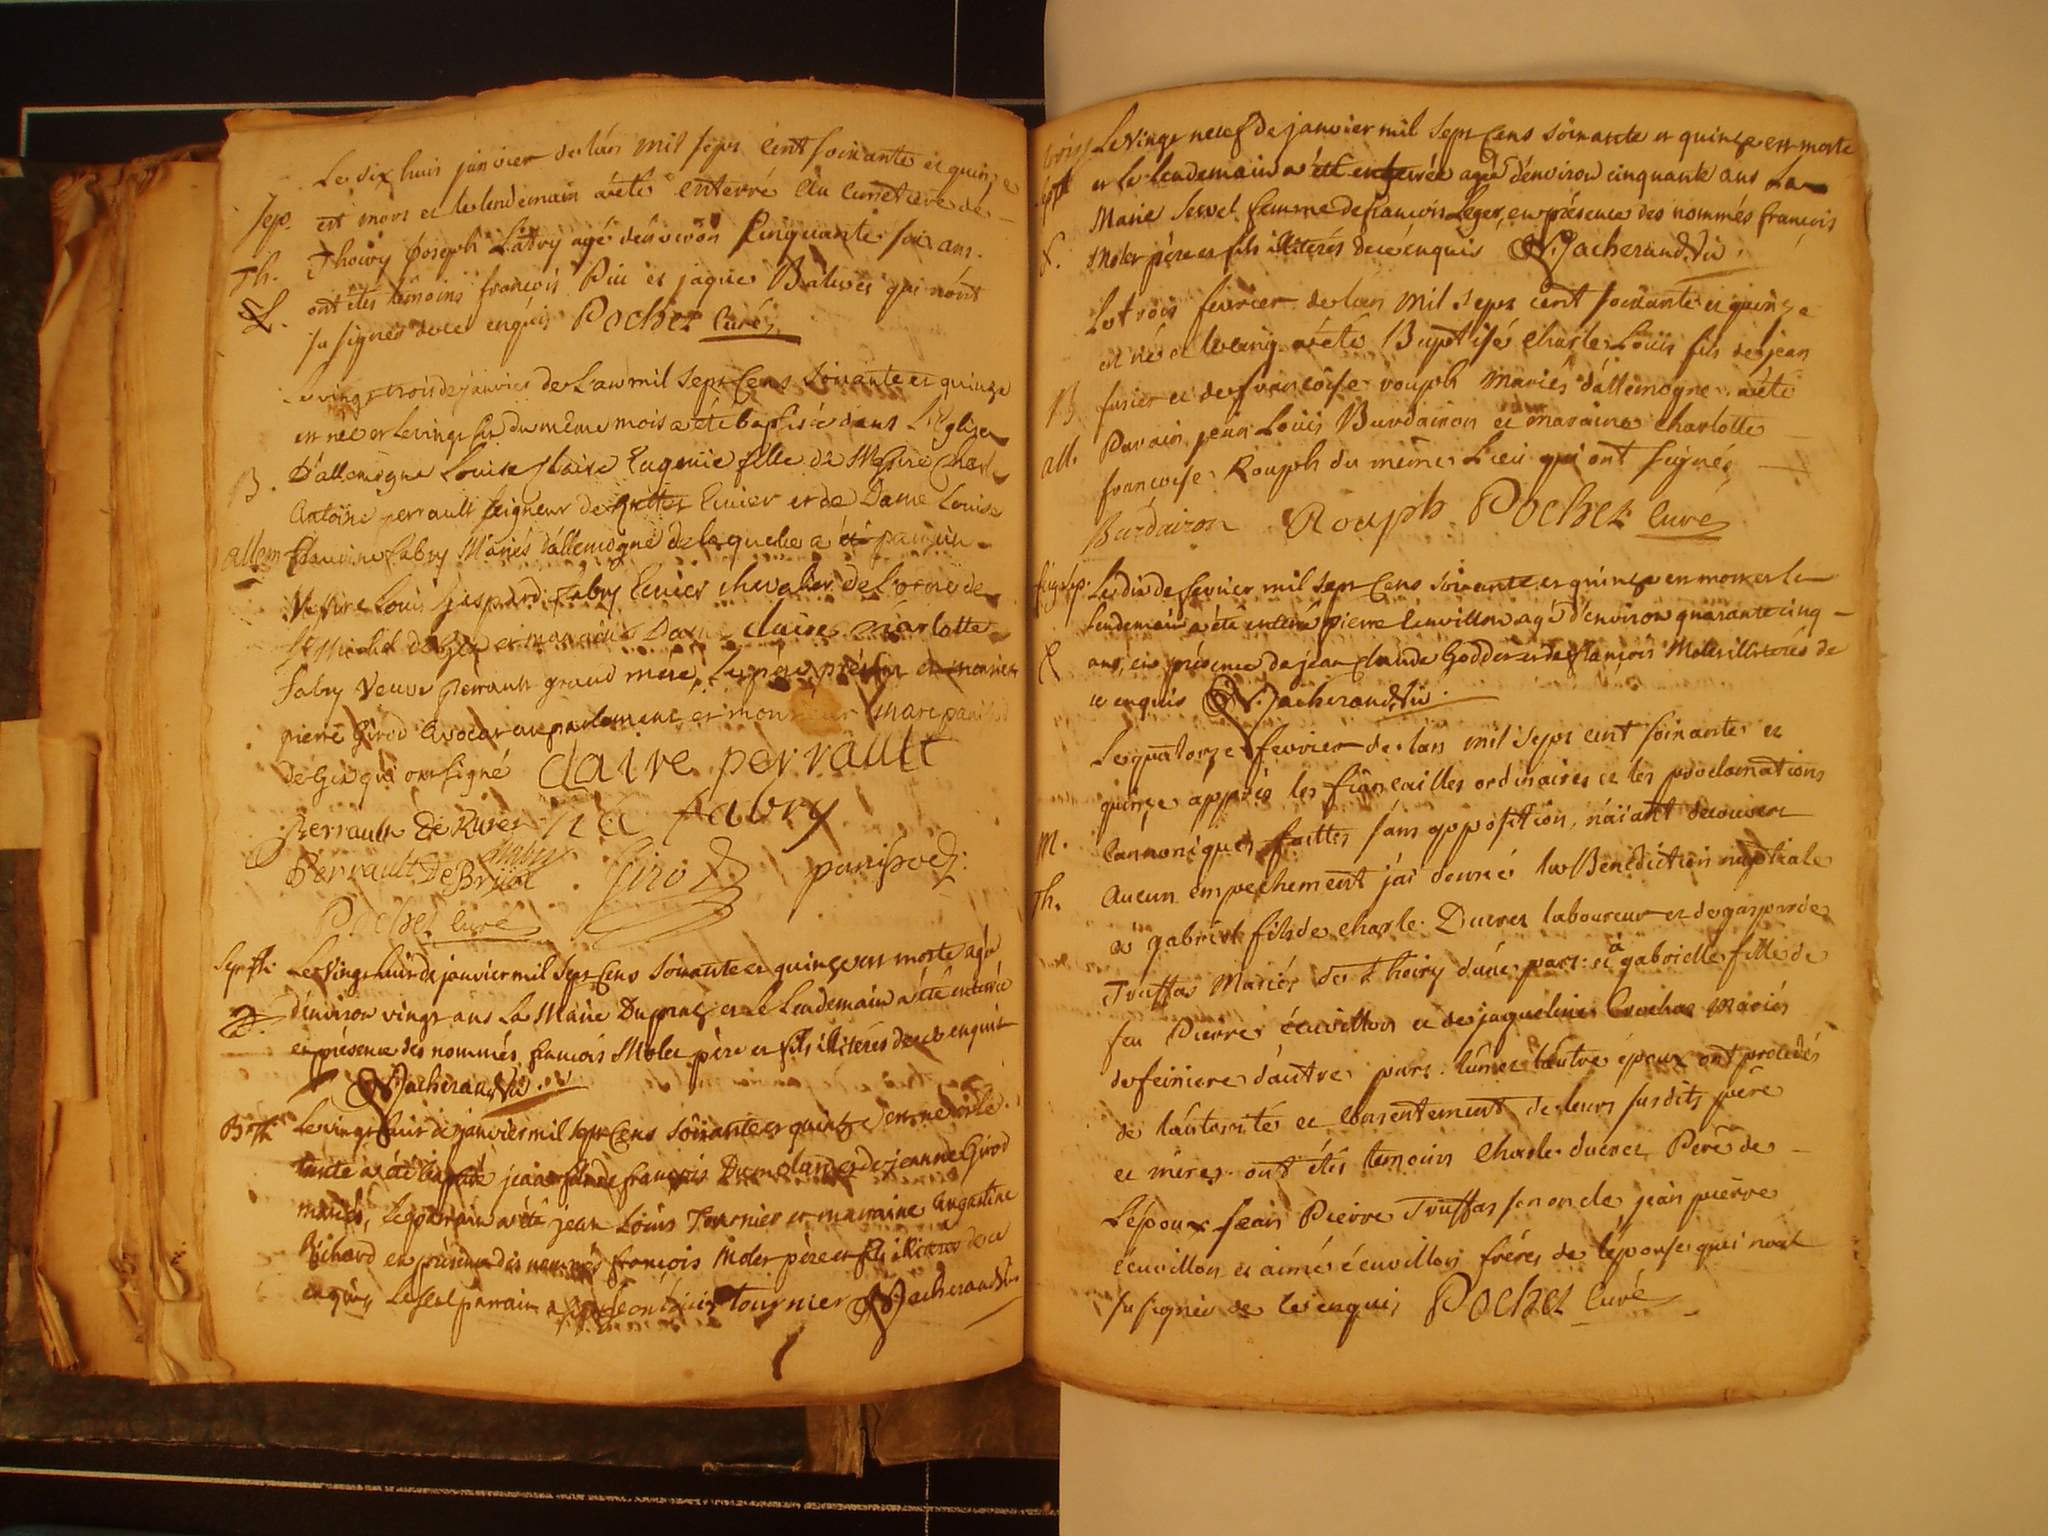 Le dix huit janvier de l'an mil sept cent soixante et quinze
Sep. est mort et le lendemain a été enterré au cimetière de
Th. Thoiry Joseph Latry agé d'environ cinquante six ans.
L. ont étés témoins françois Pic et jaque qui n'ont
su signer de ce enquis Pochet curé
Le vingt trois de janvier de L'an mil sept Cens soixante et quinze
est née et le vingt six du même mois a été baptisée dans L'Eglise
B. D'allemogne Louise Claire Eugenie fille de Messire Charle
Antoine perrault seigneur de Ecuier et de Dame Louise
allem fabry Mariés d'allemogne de laquelle a été parrain
Messire Louis Gaspard fabry Ecuier chevalier de L'ordre de
St Michel de Gex et marraine Dame claire charlotte
fabry Veuve perrault grand mère, Le père présent et monsieur
pierre Girod avocat au parlement et monsieur Marc
de Gex qui ont signé claire perrault
Perrault De Ruet fabry
Perrault De Brijat Girod panissod
Pochet curé
Sep. Th. Le vingt huit de janvier mil sept Cens soixante et quinze est morte agée
d'environ vingt ans La Marie Dupraz et le Lendemain a été enterrée
en présence des nommés françois Moler père et fils illiterés de ce enquis
N. Jacherand Vic.
B. Th. Le vingt huit de janvier mil sept Cens soixante et quinze est né et le
trente a été baptisé jean fils de françois Dumolard et de jeanne Girod
mariés, Le parrain a été jean Louis Tournier et marraine augustine
Richard en présence des nommés françois Moler père et fils illiterés de ce
enquis Le seul parrain a signé jean Louis Tournier N. Jacherand Vic.
Le Vingt neuf de janvier mil sept Cens soixante et quinze est morte
Sept et le Lendemain a été enterrée agée d'environ cinquante ans La
Marie Servet femme de françois Leger, en présence des nommés françois
Moler père et fils illiterés de ce enquis N. Jacherand Vic.
Le trois fevrier de l'an mil sept cent soixante et quinze
est né et le cinq a été Baptisé Charle Louis fils de jean
B. fusier et de françoise rouph mariés d'allemogne. a été
all. Parain jean Louis Burdairon et maraine charlotte
françoise Rouph du même Lieu qui ont signés
Burdairon Rouph Pochet curé
Sep. Le dix de fevrier mil sept Cens soixante et quinze est mort et le
Lendemain a été enterré pierre Ecuvillon agé d'environ quarante cinq
ans, en présence de jean claude Godder et de françois Moler illiterés de
ce enquis N. Jacherand Vic.
Le quatorze fevrier de l'an mil sept cent soixante et
quinze apprès les fiançailles ordinaires et les proclamations
M. cannoniques faittes sans opposition, n'aiant decouvert
Th. aucun empechement j'ai donné la Benediction nuptiale
à gabriel fils de charle Ducret laboureur et de gasparde
Truffas Mariés de Thoiry d'une part: et à gabrielle fille de
feu Pierre écuvillon et de jaqueline Crochat Mariés
de feiniere d'autre part. l'un et l'autre époux ont procedés
de l'autorité et consentement de leurs susdits père
et mères. ont étés temoins Charle ducret Père de
L'epoux Jean Pierre Truffas son oncle jean pierre
écuvillon et aimé écuvillon frères de l'épouse qui n'ont
su signer de ce enquis Pochet curé